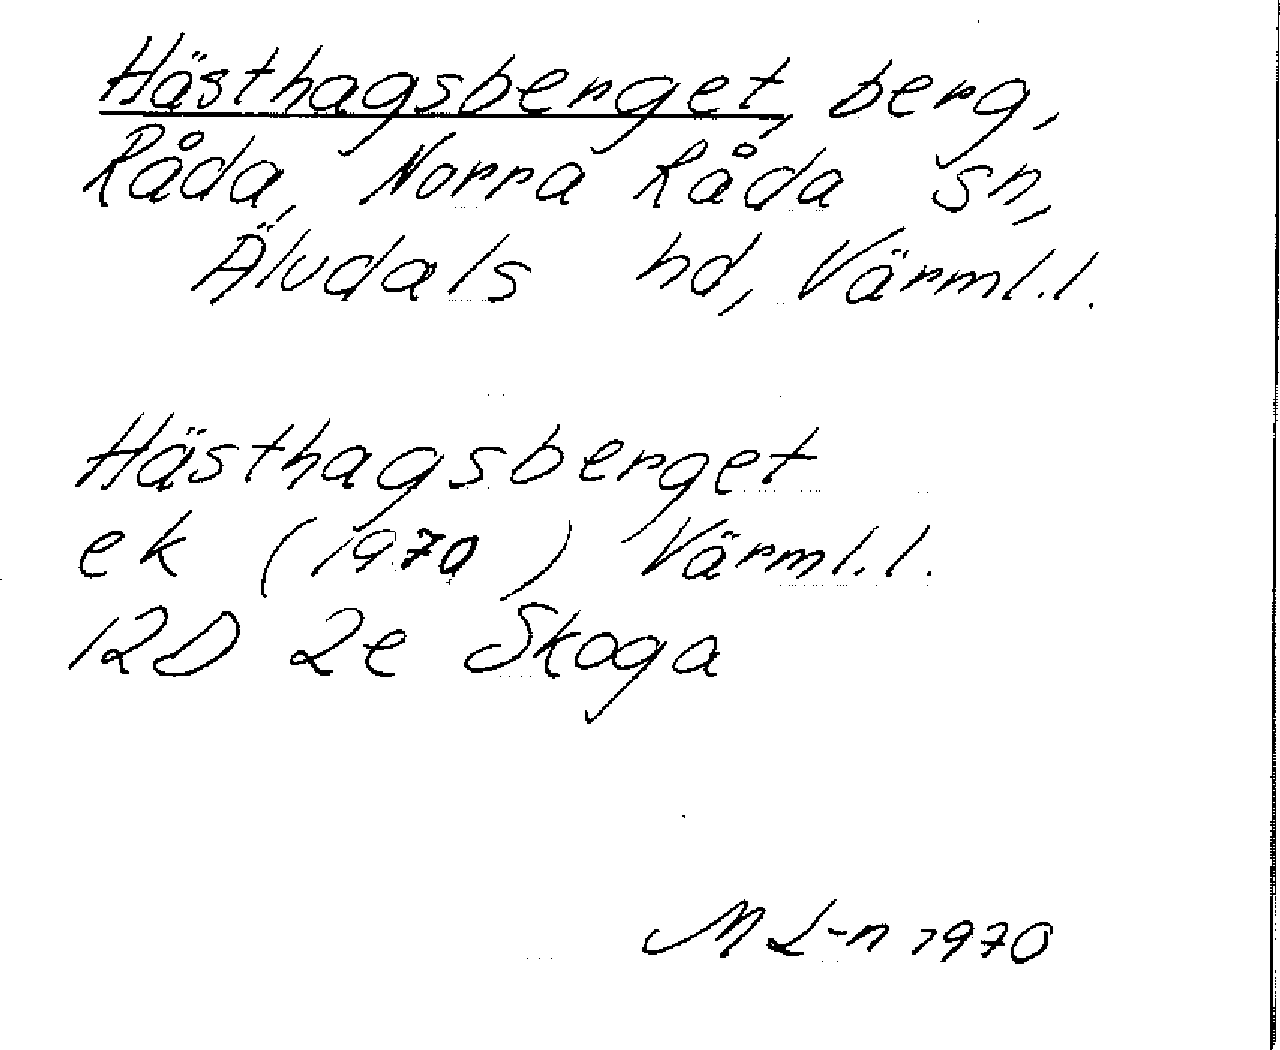 Hästhagsberget, berg,
Råda, Norra Råda sn,
Älvdals hd, Värml.l.
Hästhagsberget
ek (1970) Värml.l.
12D 2e Skoga
M L-n 1970